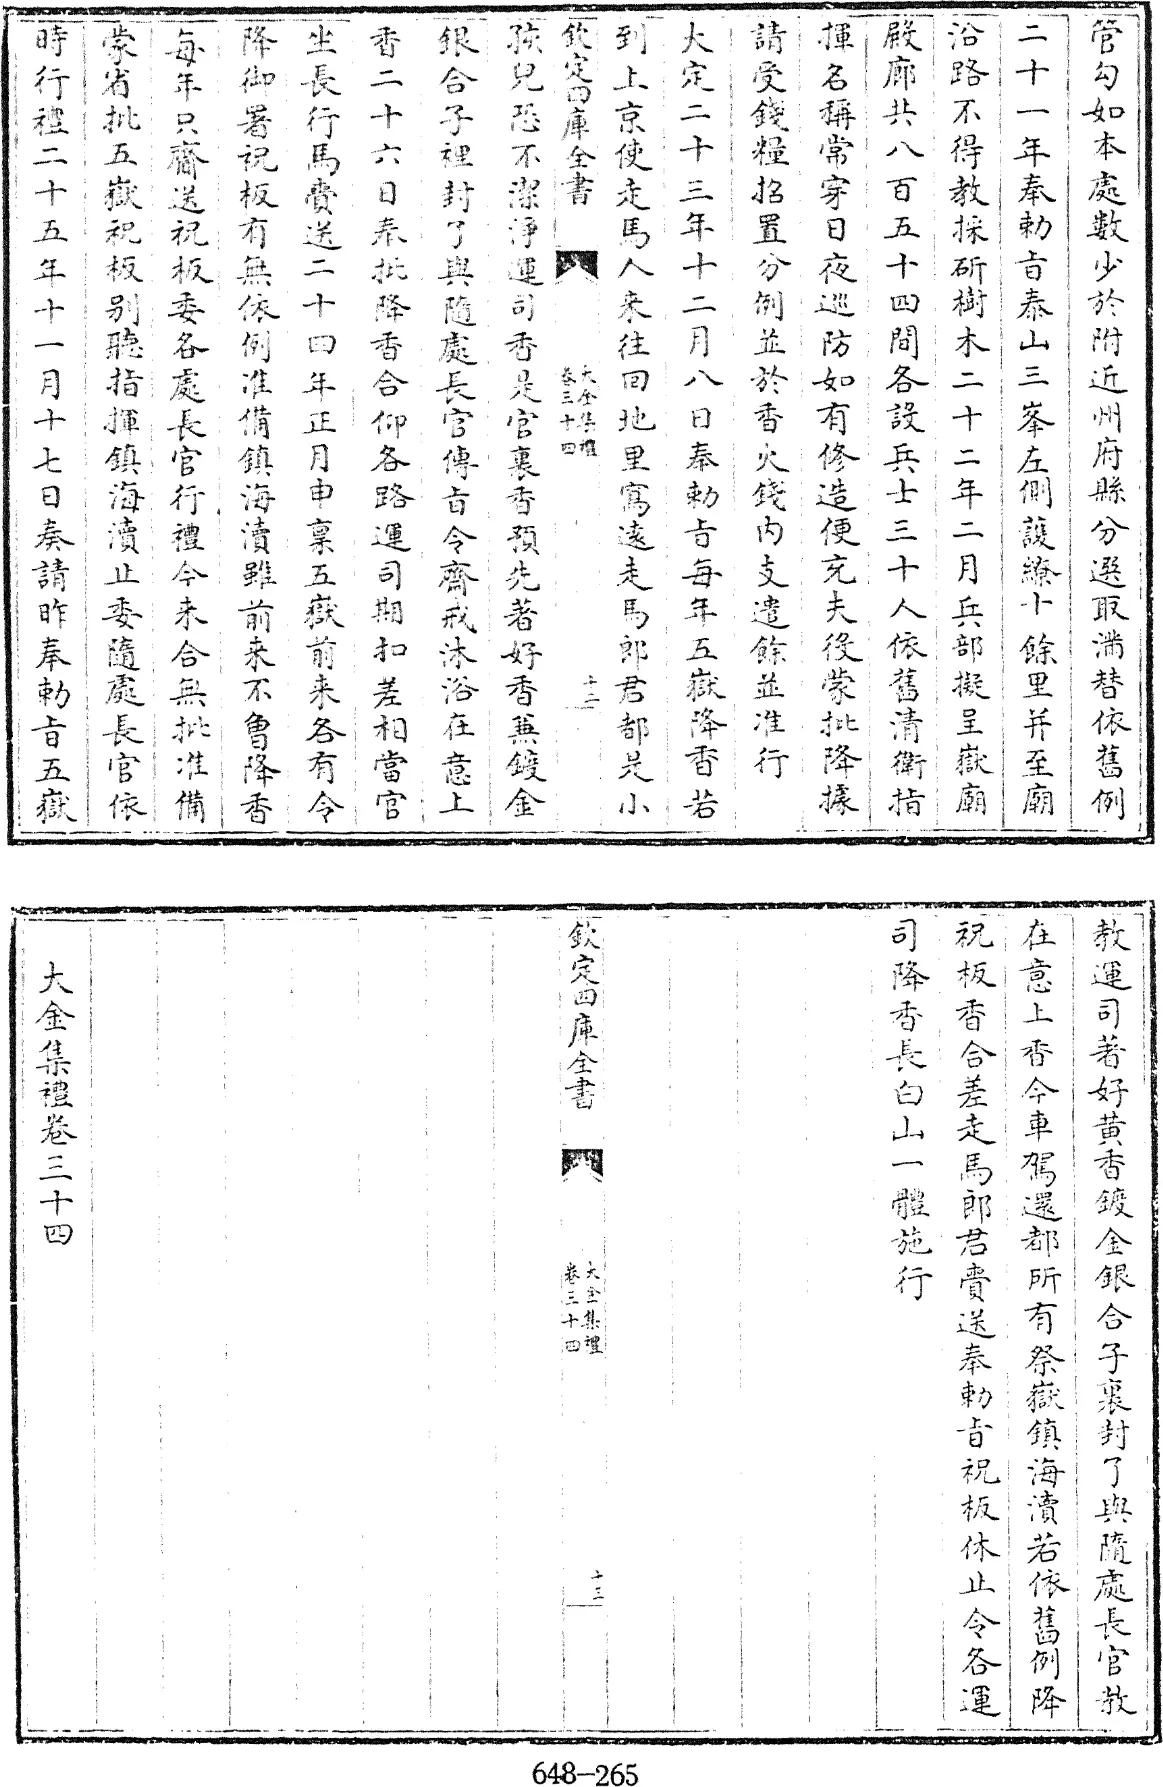 管勾如本處數少於附近州府縣分選取滿替依舊例
二十一年奉勅㫖泰山三峯左側護繚十餘里并至廟
沿路不得教採斫樹木二十二年二月兵部擬呈嶽廟
殿廊共八百五十四間各設兵士三十人依舊清衛指
揮名稱常穿日夜巡防如有修造便充夫役蒙批降據
請受錢糧招置分例並於香火錢内支遣餘並准行
大定二十三年十二月八日奉勅㫖每年五嶽降香若
到上京使走馬人來往回地里寫逺走馬郎君都是小
欽定四庫全書
大金集禮
卷三十四
十二
孩兒恐不潔淨運司香是官裏香預先著好香兼鍍金
銀合子裡封了與隨處長官傳㫖令齋戒沐浴在意上
香二十六日奉批降香合仰各路運司期扣差相當官
坐長行馬賫送二十四年正月申稟五嶽前来各有令
降御署祝板有無依例准備鎮海瀆雖前来不曾降香
每年只齎送祝板委各處長官行禮今来合無批准備
蒙省批五嶽祝板别聽指揮鎮海瀆止委隨處長官依
時行禮二十五年十一月十七日奏請昨奉勅㫖五嶽
教運司著好黄香鍍金銀合子裏封了與隨處長官教
在意上香今車駕還都所有祭嶽鎮海瀆若依舊例降
祝板香合差走馬郎君賫送奉勅㫖祝板休止令各運
司降香長白山一體施行
欽定四庫全書
大金集禮
卷三十四
十三
大金集禮卷三十四
648-265